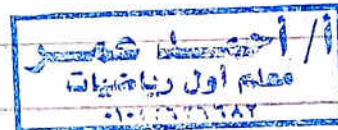 أ/ أحمد عمر
معلم أول رياضيات